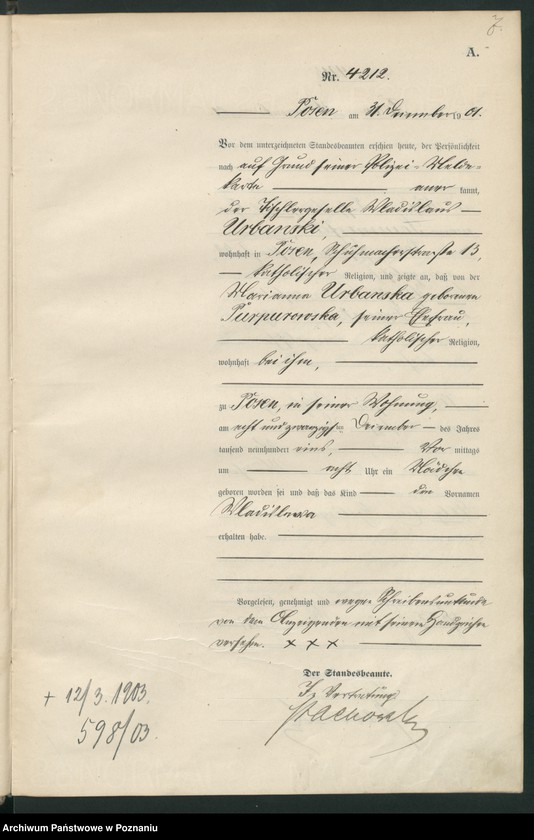 7.
A.
Nr. 4212.
Posen am 31. Dezember 1901.
Vor dem unterzeichneten Standesbeamten erschien heute, der Persönlichkeit
nach auf Grund seiner Polizei-Melde-
karte anerkannt,
der Tischlergeselle Wladislaus
Urbanski,
wohnhaft in Posen, Schuhmacherstraße 13,
katholischer Religion, und zeigte an, daß von der
Marianna Urbanska geborenen
Purpurowska, seiner Ehefrau,
katholischer Religion,
wohnhaft bei ihm,
zu Posen, in seiner Wohnung,
am acht und zwanzigsten Dezember des Jahres
tausend neunhundert eins, Vormittags
um acht Uhr ein Mädchen
geboren worden sei und daß das Kind den Vornamen
Wladislawa
erhalten habe.
Vorgelesen, genehmigt und wegen Schreibensunkunde
von dem Anzeigenden mit seinem Handzeichen
versehen. x x x
Der Standesbeamte.
In Vertretung
+ 12/3. 1903.
598/03.
Archiwum Państwowe w Poznaniu